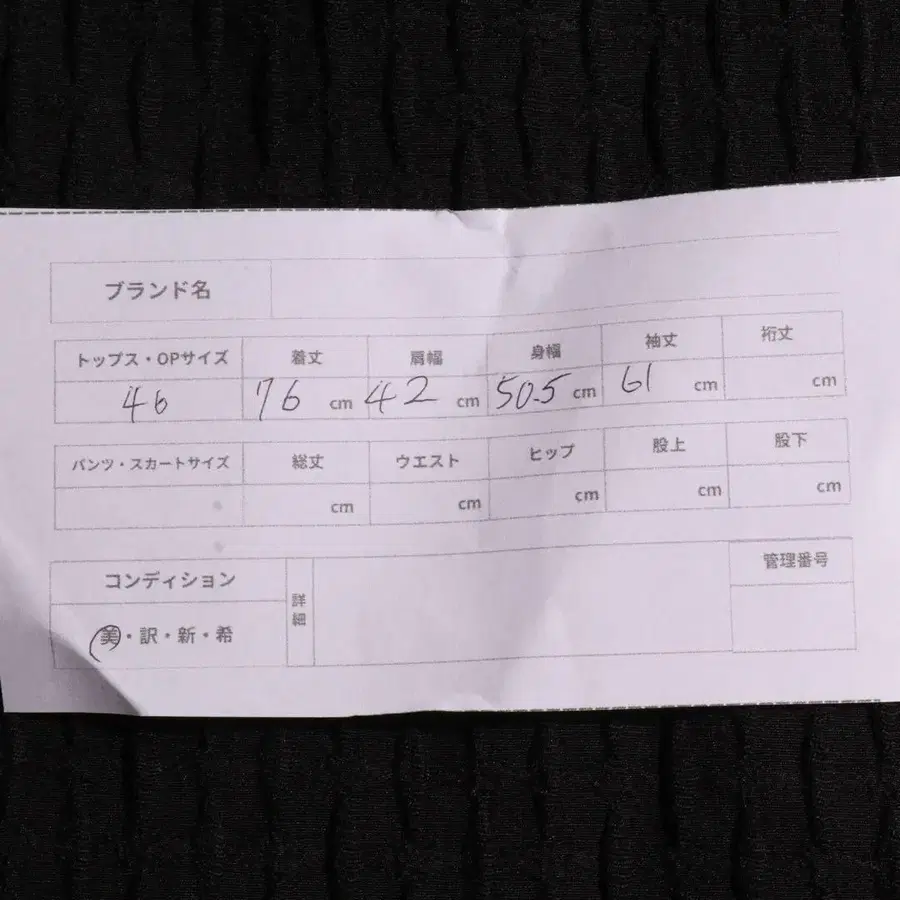 ブランド名
トップス・OPサイズ 着丈 肩幅 身幅 袖丈 裄丈
46 76 cm 42 cm 50.5 cm 61 cm cm
パンツ・スカートサイズ 総丈 ウエスト ヒップ 股上 股下
cm cm cm cm cm
コンディション 詳細 管理番号
美・訳・新・希